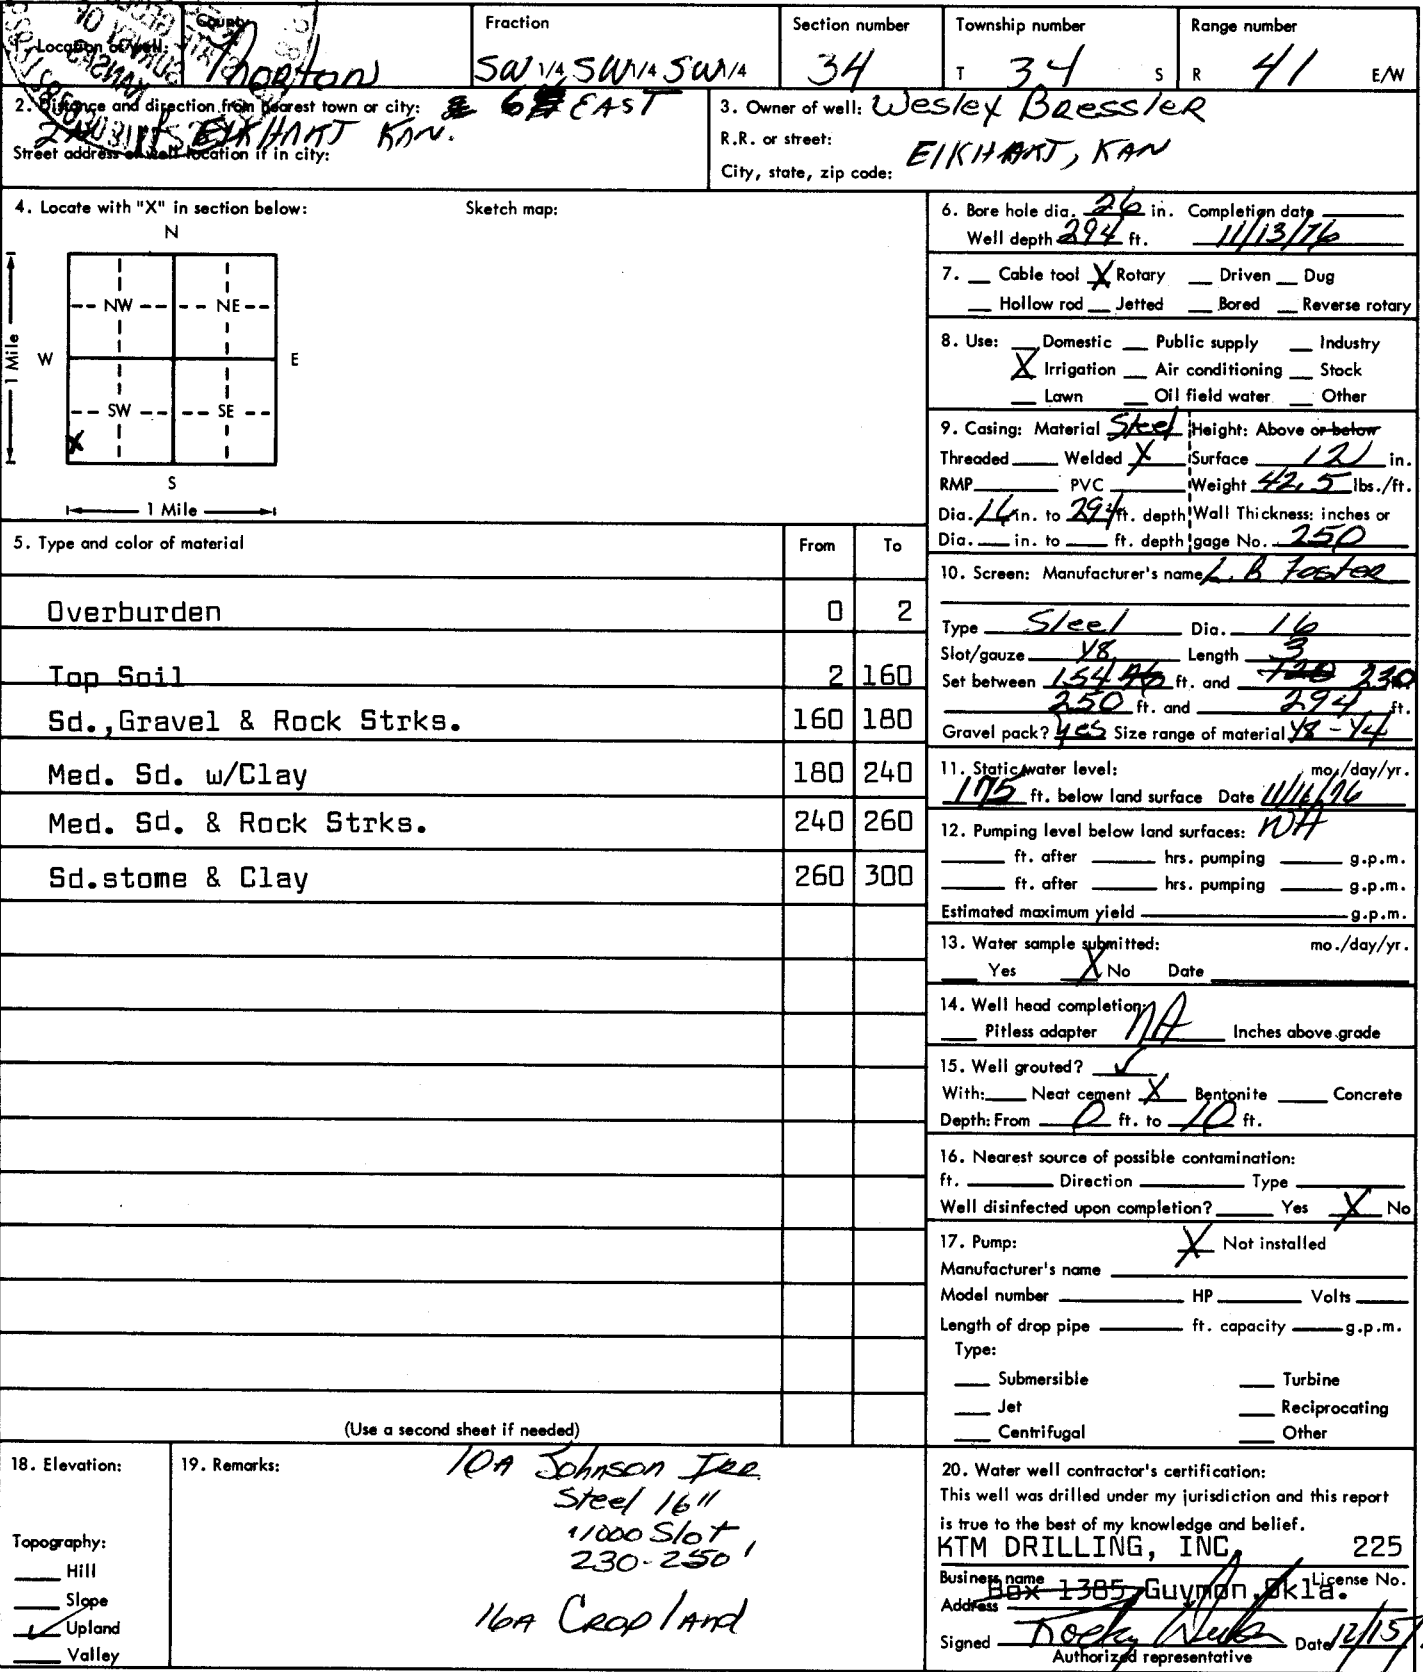 1. Location of well:
County
Morton
Fraction
SW 1/4 SW 1/4 SW 1/4
Section number
34
Township number
T 34 S
Range number
R 41 E/W
2. Distance and direction from nearest town or city: 6 EAST
ELKHART KAN.
Street address of well location if in city:
3. Owner of well: Wesley Bressler
R.R. or street:
City, state, zip code: ElKHART, KAN
4. Locate with "X" in section below:
Sketch map:
N
NW NE
W E
1 Mile
SW SE
X
S
1 Mile
5. Type and color of material From To
Overburden 0 2
Top Soil 2 160
Sd.,Gravel & Rock Strks. 160 180
Med. Sd. w/Clay 180 240
Med. Sd. & Rock Strks. 240 260
Sd.stome & Clay 260 300
(Use a second sheet if needed)
6. Bore hole dia. 26 in. Completion date
Well depth 294 ft. 11/13/76
7. __ Cable tool X Rotary __ Driven __ Dug
__ Hollow rod __ Jetted __ Bored __ Reverse rotary
8. Use: __ Domestic __ Public supply __ Industry
X Irrigation __ Air conditioning __ Stock
__ Lawn __ Oil field water __ Other
9. Casing: Material Steel Height: Above or below
Threaded ____ Welded X Surface 12 in.
RMP ____ PVC ____ Weight 42.5 lbs./ft.
Dia. 16 in. to 294 ft. depth Wall Thickness: inches or
Dia. ___ in. to ___ ft. depth gage No. 250
10. Screen: Manufacturer's name L. B Foster
Type Steel Dia. 16
Slot/gauze 1/8 Length 3
Set between 154 ft. and 230 ft.
250 ft. and 294 ft.
Gravel pack? yes Size range of material 1/8 - 1/4
11. Static water level: mo./day/yr.
175 ft. below land surface Date 11/16/76
12. Pumping level below land surfaces: NA
____ ft. after ____ hrs. pumping ____ g.p.m.
____ ft. after ____ hrs. pumping ____ g.p.m.
Estimated maximum yield ____ g.p.m.
13. Water sample submitted: mo./day/yr.
__ Yes X No Date ____
14. Well head completion:
__ Pitless adapter NA Inches above grade
15. Well grouted? ✓
With: ___ Neat cement X Bentonite ___ Concrete
Depth: From 0 ft. to 10 ft.
16. Nearest source of possible contamination:
ft. ____ Direction ____ Type ____
Well disinfected upon completion? ____ Yes X No
17. Pump: X Not installed
Manufacturer's name ____
Model number ____ HP ____ Volts ____
Length of drop pipe ____ ft. capacity ____ g.p.m.
Type:
__ Submersible __ Turbine
__ Jet __ Reciprocating
__ Centrifugal __ Other
18. Elevation:
Topography:
__ Hill
__ Slope
✓ Upland
__ Valley
19. Remarks: 10A Johnson Irr.
Steel 16"
230-250'
16A Cropland
20. Water well contractor's certification:
This well was drilled under my jurisdiction and this report
is true to the best of my knowledge and belief.
KTM DRILLING, INC. 225
Business name License No.
Box 1385, Guymon, Okla.
Address
Signed Date 12/15/
Authorized representative